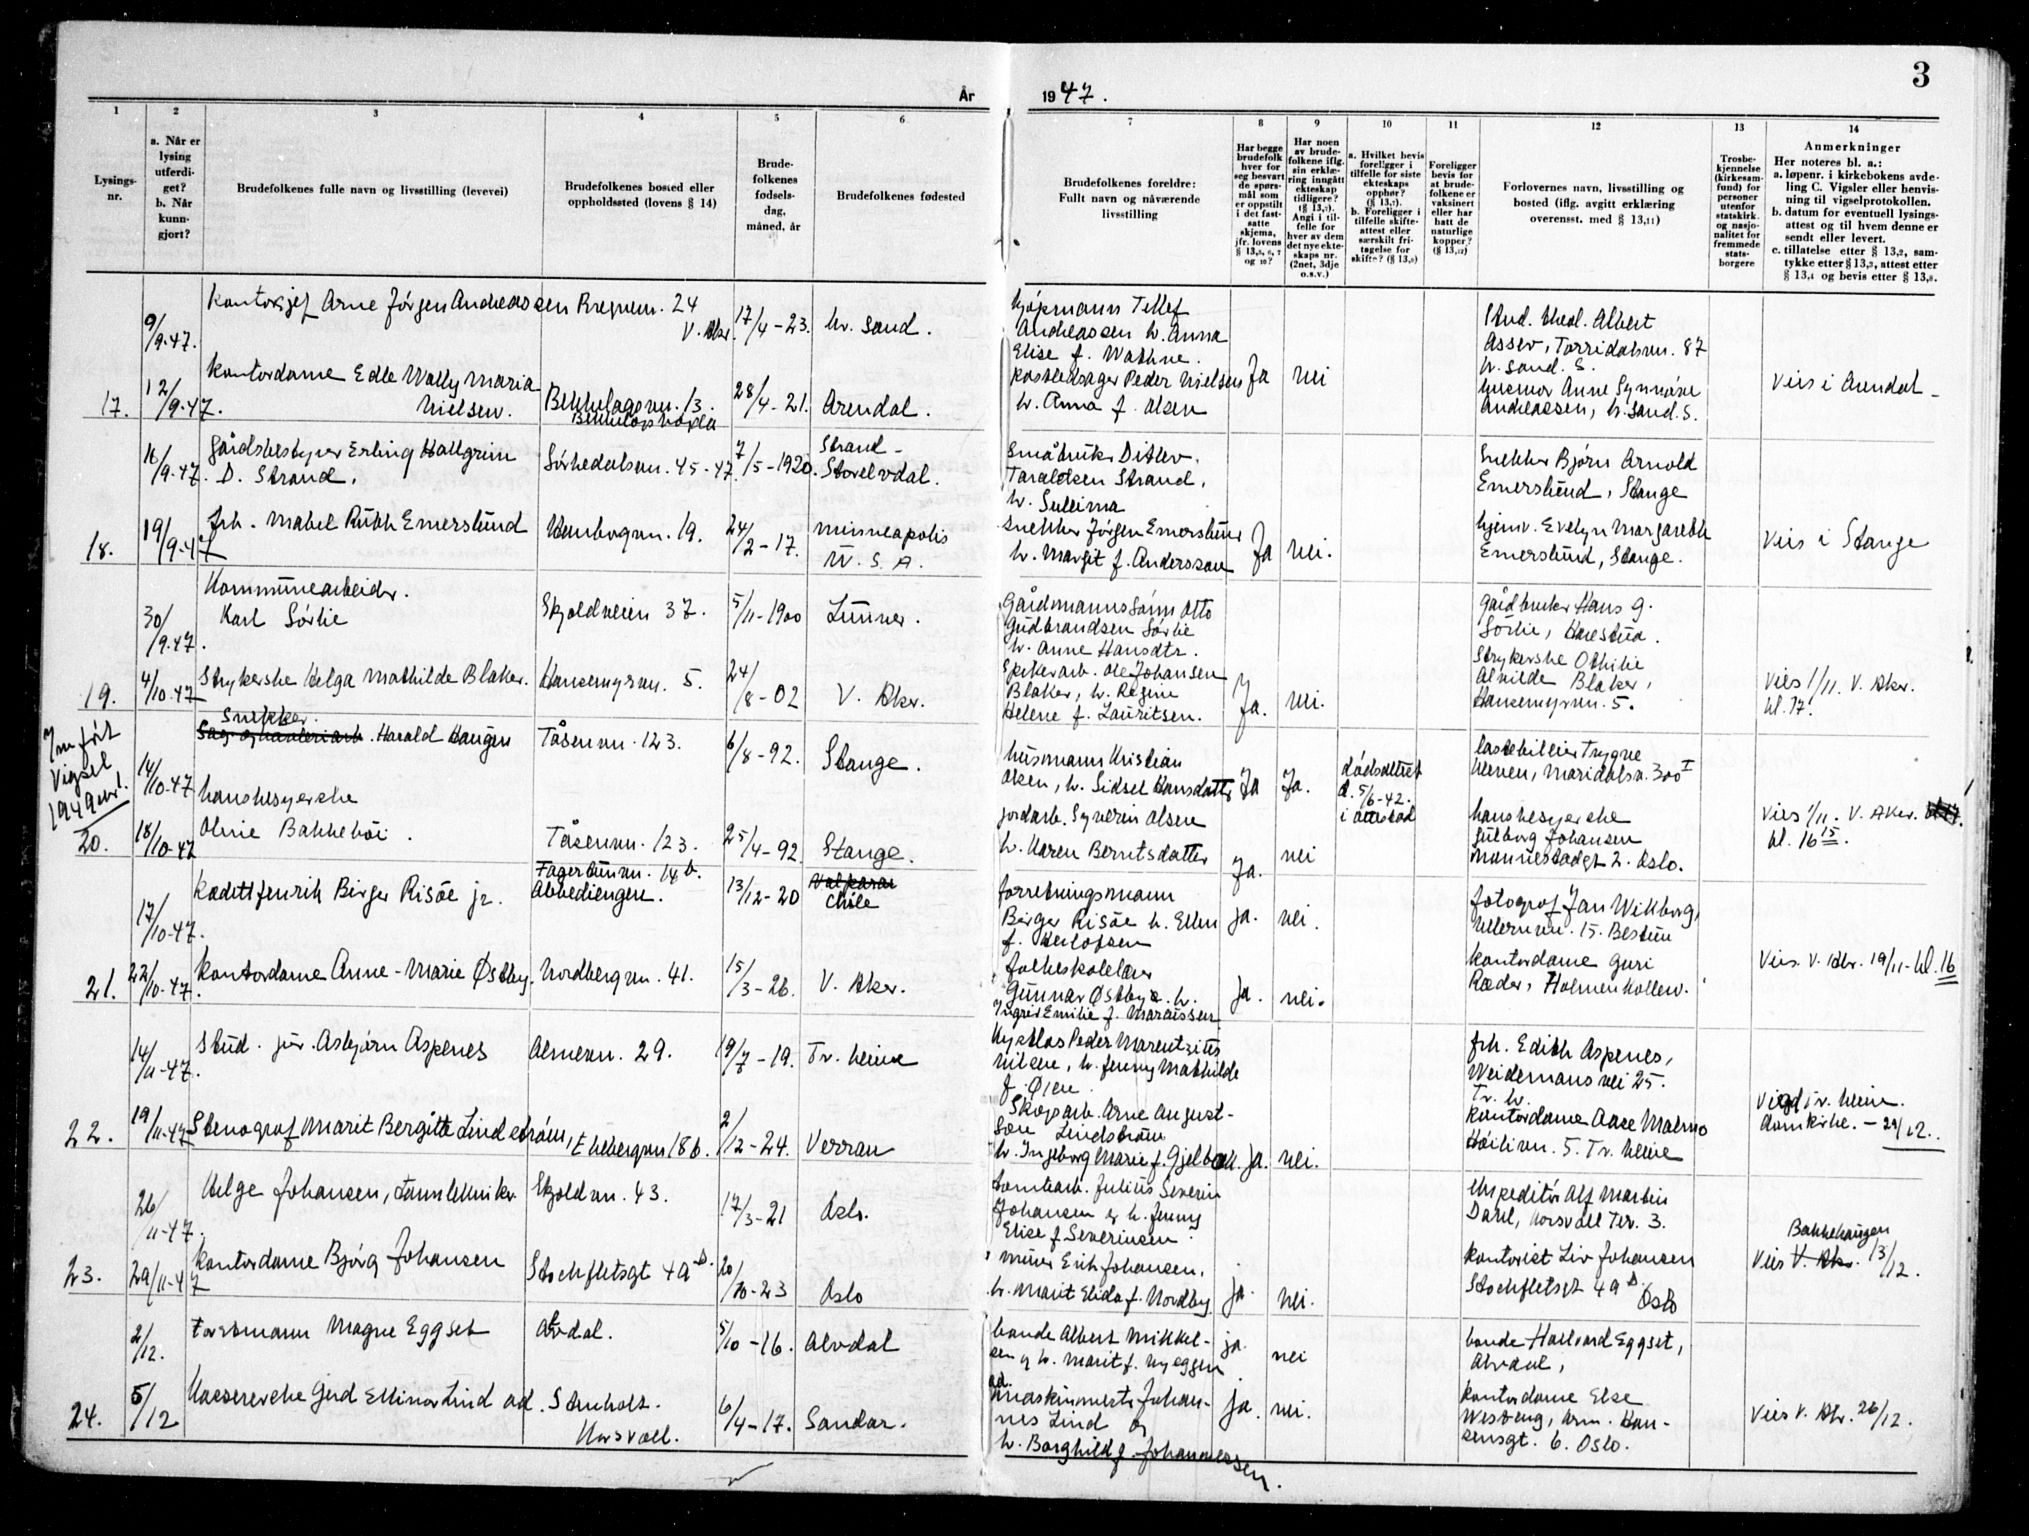 3
År 1947.
1
2
3
4
5
6
7
8
9
10
11
12
13
14
Lysings-
nr.
a. Når er
lysing
utferdi-
get?
b. Når
kunn-
gjort?
Brudefolkenes fulle navn og livsstilling (levevei)
Brudefolkenes bosted eller
oppholdssted (lovens § 14)
Brude-
folkenes
fødsels-
dag,
måned, år
Brudefolkenes fødested
Brudefolkenes foreldre:
Fullt navn og nåværende
livsstilling
Har begge
brudefolk
hver for
seg besvart
de spørs-
mål som
er oppstilt
i det fast-
satte
skjema,
jfr. lovens
og 10?
Har noen
av brude-
folkene iflg.
sin erklæ-
ring inngått
ekteskap
tidligere?
(§ 13,7).
Angi i til-
felle for
hver av dem
det nye ekte-
skaps nr.
(2net, 3dje
o.s.v.)
a. Hvilket bevis
foreligger i
tilfelle for siste
ekteskaps
opphør?
(§ 13,7).
b. Foreligger i
tilfelle skifte-
attest eller
særskilt fri-
tagelse for
skifte? (§ 13,9)
Foreligger
bevis for
at brude-
folkene er
vaksinert
eller har
hatt de
naturlige
kopper?
(§ 13,12)
Forlovernes navn, livsstilling og
bosted (iflg. avgitt erklæring
overensst. med § 13,11)
Trosbe-
kjennelse
(kirkesam-
fund) for
personer
utenfor
statskirk.
og nasjo-
nalitet for
fremmede
stats-
borgere
Anmerkninger
Her noteres bl. a.:
a. løpenr. i kirkebokens avde-
ling C. Vigsler eller henvis-
ning til vigselprotokollen.
b. datum for eventuell lysings-
attest og til hvem denne er
sendt eller levert.
c. tillatelse etter § 13,2, sam-
tykke etter § 13,3, attest etter
§ 13,4 og bevis etter § 13,8.
17.
9/9-47.
Kontorsjef Arne Jørgen Andreassen
24
V. Aker.
17/4-23.
Kr. sand.
Kjøpmann Tellef
Andreassen h. Anna
Elise f. Wathne.
Stud. theol. Albert
Assev, Torridalsvn. 87
Kr. sand. S.
12/9-47.
Kontordame Edle Wally Maria
Nielsen.
Bekkelagsvn. 13.
Bekkelagshøgda
28/4-21.
Arendal.
Peder Nielsen
h. Anna f. Olsen
Ja
nei
Anne Synnøve
Andreassen, Kr. sand. S.
Vies i Arendal
18.
16/9-47.
Gårdsbestyrer Erling Hallgrim
D. Strand.
Sørkedalsvn. 45-47.
7/5-1920.
Strand-
Storelvdal.
Småbruker Ditlev
Taraldsen Strand,
h. Sulima
Snekker Bjørn Arnold
Emerslund, Stange
19/9-47
frk. Mabel Ruth Emerslund
19.
24/2-17.
Minneapolis
U. S. A.
Snekker Jørgen Emerslund
h. Margit f. Andersson
Ja
nei.
hjemv. Evelyn Margareth
Emerslund, Stange.
Vies i Stange
19.
30/9-47.
Kommunearbeider.
Karl Sørlie
Skjoldveien 37.
5/11-1900
Lunner.
Gårdmannssønn Otto
Gudbrandsen Sørlie
h. Anne Hansdtr.
Gårdbruker Hans G.
Sørlie, Harestua.
4/10-47
Strykerske Helga Mathilde Blaker.
Hansemyrvn. 5.
24/8-02
V. Aker.
Ole Johansen
Blaker, h. Regine
Helene f. Lauritsen.
Ja.
nei.
Strykerske Othilie
Alvilde Blaker,
Hansemyrvn. 5.
Vies 1/11. V. Aker.
kl. 17.
Vigsel
1949
20.
14/10-47
Snekker.
Harald Haugen
Tåsenvn. 123.
6/8-92.
Stange.
Husmann Kristian
Olsen, h. Sidsel Hansdatter
Ja
Ja.
dødsattest
d. 5/6-42.
i
Trygve
Maridalsv. 300 I
18/10-47
Husbestyrerske
Oline Bakkebøi.
Tåsenvn. 123.
25/4-92.
Stange.
jordarb. Syverin Olsen
h. Karen Berntsdatter
Ja.
nei
husbestyrerske
Johansen
2. Oslo.
Vies 1/11. V. Aker.
kl. 16 15.
21.
17/10-47.
Kadettfenrik Birger Risøe jr.
Fagerlunvn. 14 b.
13/12-20
Chile
forretningsmann
Birger Risøe h. Ellen
f.
ja.
nei.
fotograf Jan Wikborg,
Ullernvn. 15. Bestun
22/10-47.
Kontordame Anne-Marie Østby.
Nordbergvn. 41.
15/3-26.
V. Aker.
folkeskolelærer
Gunnar Østbye h.
Ingrid Emilie f.
ja.
nei.
Kontordame Guri
Ræder, Holmenkollen.
Vies V. Aker. 19/11-kl. 16
22.
14/11-47.
Stud. jur. Asbjørn Aspenes
Almevn. 29.
19/7-19.
Tr. heim
Peder Marentzius
Nilsen, h. Jenny Mathilde
f. Øien
frk. Edith Aspenes,
Weidemans vei 25.
Tr. h.
19/11-47
Stenograf Marit Bergitte Lindstrøm,
Ekebergvn 186.
2/12-24.
Verran
Skogsarb. Arne August-
sen Lindstrøm
h. Ingeborg Marie f.
ja.
nei.
Kontordame Aase Malmo
5. Tr. heim
Vigd i Tr. heim
domkirke. - 29/12.
23.
26/11-47.
Helge Johansen,
Skjoldvn. 43.
17/3-21
Oslo.
Julius Severin
Johansen og h. Jenny
Elise f. Severinsen.
Ekspeditør Alf Martin
Dahl, Korsvoll Ter. 3.
29/11-47
Kontordame Bjørg Johansen
Stockfletsgt 49 D.
20/10-23
Oslo
murer Erik Johansen,
h. Marit Elida f. Nordby
ja.
nei.
Kontorist Liv Johansen
Stockfletsgt 49 D. Oslo
Bakkehaugen
Vies V. Aker. 13/12.
24.
2/12.
Forstmann Magne Eggset
Alvdal.
5/10-16.
Alvdal
bonde Albert Mikkel-
sen og h. Marit f. Nyeggen
ja.
nei
bonde Hallvard Eggset,
Alvdal,
5/12
Kassererske Gerd Ellinor Lind
Korsvoll.
6/4-17.
Sandar.
maskinmester Johan-
nes Lind og
h. Borghild f. Johannessen.
ja.
nei.
Kontordame Else
Westeng, Arm. Han-
sensgt. 6. Oslo.
Vies V. Akr. 26/12.